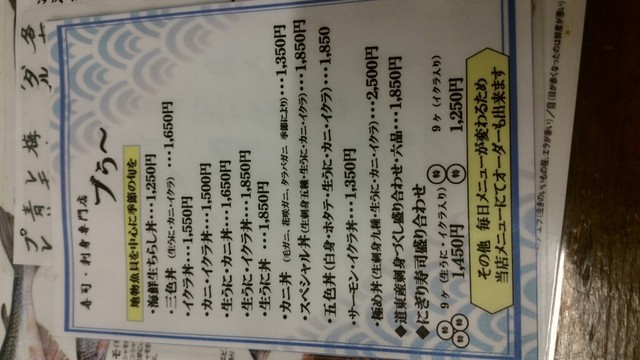 寿司・刺身専門店
プぅ〜
地物魚貝を中心に季節の旬を
・海鮮生ちらし丼・・・1,250円
・三色丼（生うに・カニ・イクラ）・・・1,650円
・イクラ丼・・・1,550円
・カニ・イクラ丼・・・1,500円
・生うに・カニ丼・・・1,650円
・生うに・イクラ丼・・・1,850円
・生うに丼・・・1,850円
・カニ丼（毛ガニ、花咲ガニ、タラバガニ 季節により）・・・1,350円
・スペシャル丼（生刺身五種・生うに・カニ・イクラ）・・・1,850円
・五色丼（白身・ホタテ・生うに・カニ・イクラ）・・・1,850
・サーモン・イクラ丼・・・1,350円
・極め丼（生刺身九種・生うに・カニ・イクラ）・・・2,500円
◆道東産刺身づくし盛り合わせ・六品・・・1,850円
◆にぎり寿司盛り合わせ
特 9ヶ（イクラ入り） 1,250円
特特 9ヶ（生うに・イクラ入り） 1,450円
その他 毎日メニューが変わるため
当店メニューにてオーダーも出来ます